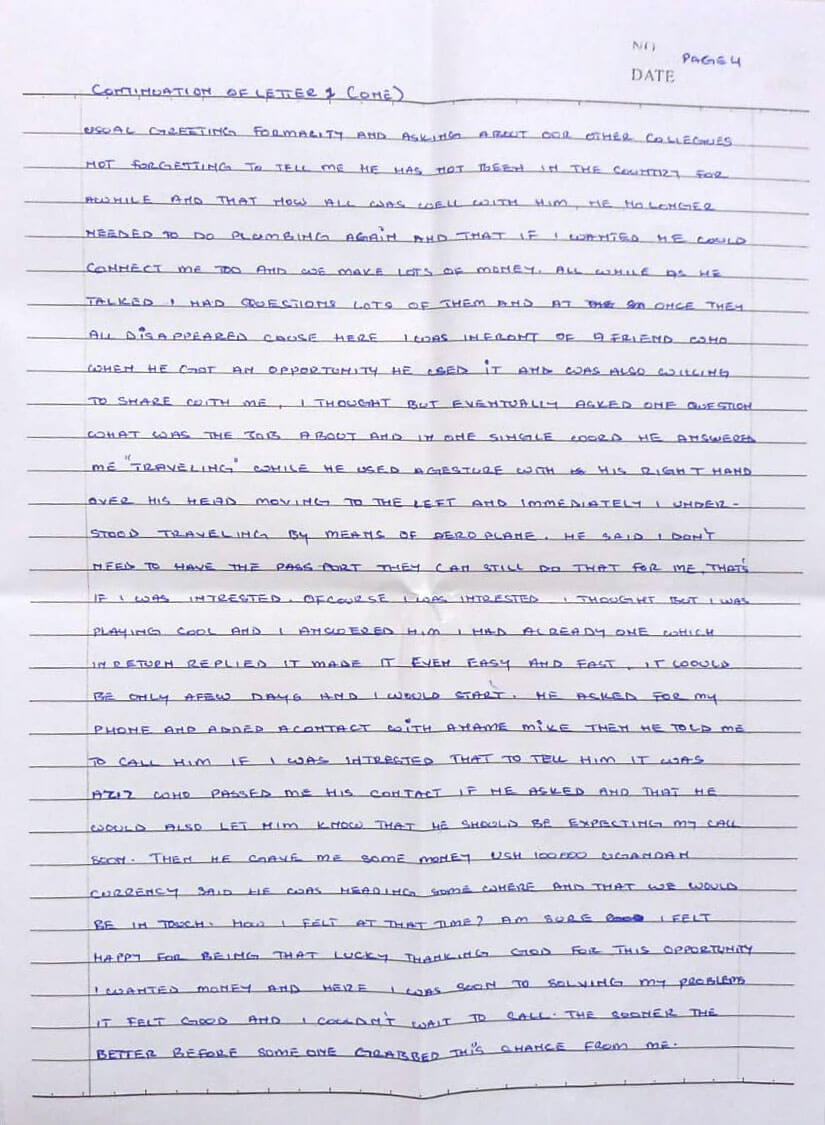 NO
PAGE 4
DATE
CONTINUATION OF LETTER 1 (ONE)
USUAL GREETING FORMARITY AND ASKING ABOUT OUR OTHER COLLEGUES
NOT FORGETTING TO TELL ME HE HAS NOT BEEN IN THE COUNTRY FOR
AWHILE AND THAT NOW ALL WAS WELL WITH HIM, HE NO LONGER
NEEDED TO DO PLUMBING AGAIN AND THAT IF I WANTED HE COULD
CONNECT ME TOO AND WE MAKE LOTS OF MONEY. ALL WHILE AS HE
TALKED I HAD QUESTIONS LOTS OF THEM AND AT ONCE THEY
ALL DISAPPEARED CAUSE HERE I WAS INFRONT OF A FRIEND WHO
WHEN HE GOT AN OPPORTUNITY HE USED IT AND WAS ALSO WILLING
TO SHARE WITH ME, I THOUGHT BUT EVENTUALLY ASKED ONE QUESTION
WHAT WAS THE JOB ABOUT AND IN ONE SINGLE WORD HE ANSWERED
ME "TRAVELING" WHILE HE USED A GESTURE WITH HIS RIGHT HAND
OVER HIS HEAD MOVING TO THE LEFT AND IMMEDIATELY I UNDER-
STOOD TRAVELING BY MEANS OF AEROPLANE. HE SAID I DON'T
NEED TO HAVE THE PASSPORT THEY CAN STILL DO THAT FOR ME, THAT'S
IF I WAS INTRESTED. OFCOURSE I WAS INTRESTED I THOUGHT BUT I WAS
PLAYING COOL AND I ANSWERED HIM I HAD ALREADY ONE WHICH
IN RETURN REPLIED IT MADE IT EVEN EASY AND FAST, IT WOULD
BE ONLY AFEW DAYS AND I WOULD START. HE ASKED FOR MY
PHONE AND ADDED A CONTACT WITH A NAME MIKE THEN HE TOLD ME
TO CALL HIM IF I WAS INTRESTED THAT TO TELL HIM IT WAS
AZIZ WHO PASSED ME HIS CONTACT IF HE ASKED AND THAT HE
WOULD ALSO LET HIM KNOW THAT HE SHOULD BE EXPECTING MY CALL
SOON. THEN HE GAVE ME SOME MONEY USH 100000 UGANDAN
CURRENCY SAID HE WAS HEADING SOME WHERE AND THAT WE WOULD
BE IN TOUCH. HOW I FELT AT THAT TIME? AM SURE I FELT
HAPPY FOR BEING THAT LUCKY THANKING GOD FOR THIS OPPORTUNITY
I WANTED MONEY AND HERE I WAS SOON TO SOLVING MY PROBLEMS
IT FELT GOOD AND I COULDN'T WAIT TO CALL. THE SOONER THE
BETTER BEFORE SOME ONE GRABBED THIS CHANCE FROM ME.